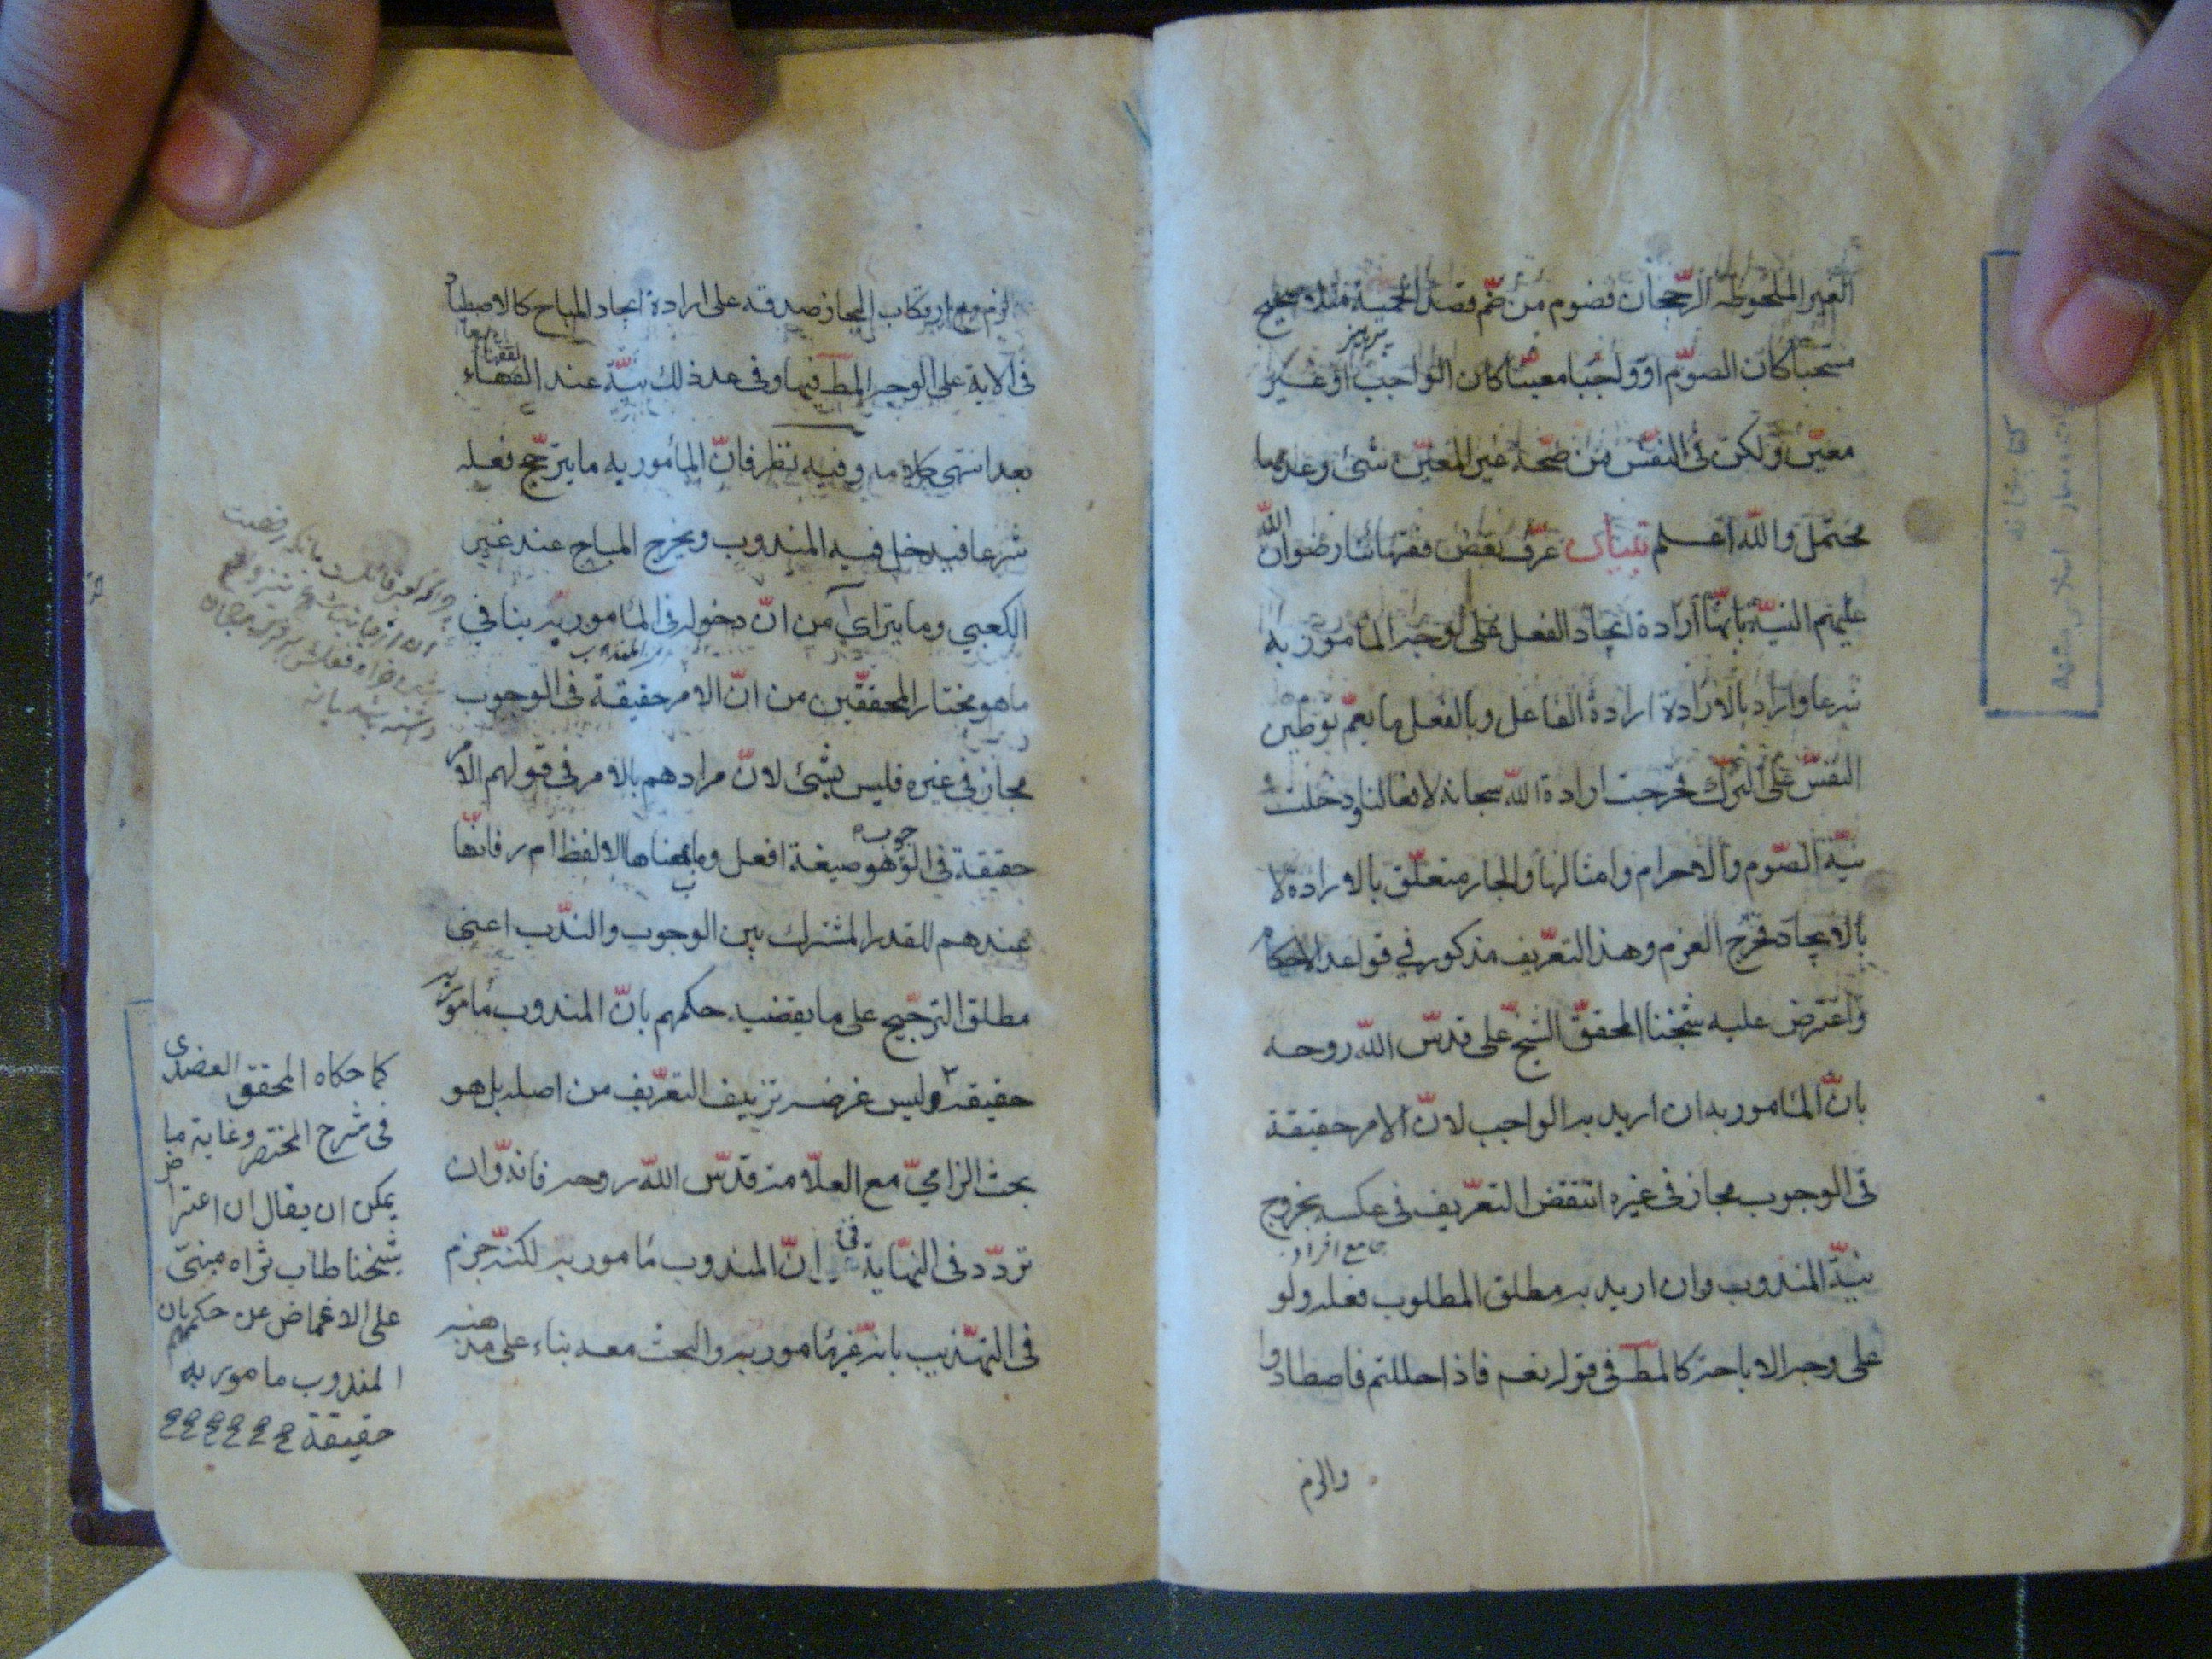 الغير الملحوظة الرجحان فصوم من ضمّ قصد الحمية مثلا صحيح
مستحبّا كان الصوم او واجبا معيّنا كان الواجب او غير
معيّن ولكن في النفس من صحّة غير المعيّن شئ وعدمها
محتمل والله اعلم تبيان عرّف بعض فقهائنا رضوان الله
عليهم النيّة بانّها ارادة ايجاد الفعل على الوجه المأمور به
شرعا واراد بالارادة ارادة الفاعل وبالفعل ما يعمّ توطين
النفس على الترك فخرجت ارادة الله سبحانه لافعالنا ودخلت
نيّة الصّوم والاحرام وامثالها والجار متعلّق بالارادة لا
بالايجاد فخرج العزم وهذا التعريف مذكور في قواعد الاحكام
واعترض عليه شيخنا المحقّق الشيخ علي قدّس الله روحه
بانّ المأمور به ان اريد به الواجب لانّ الامر حقيقة
في الوجوب مجاز في غيره انتقض التعريف في عكسه بخروج
جامع افراد
نيّة المندوب وان اريد به مطلق المطلوب فعله ولو
على وجه الاباحة كالمط في قوله تعم فاذا حللتم فاصطادوا
والزم
لزم مع ارتكاب المجاز صدقه على ارادة ايجاد المباح كالاصطياد
في الاية على الوجه المط فيها وفي عد ذلك نيّة عند الفقهاء
بعد انتهى كلامه وفيه نظر فانّ المأمور به ما يترجّح فعله
شرعا فيدخل فيه المندوب ويخرج المباح عند غير
الكعبي وما يتراآى من انّ دخوله في المأمور به ينافي
المندوب
ما هو مختار المحققين من انّ الامر حقيقة في الوجوب
مجاز في غيره فليس بشئ لانّ مرادهم بالامر في قولهم الامر
حقيقة في الوجوب هو صيغة افعل وما بمعناها لا لفظ ام ر فانّها
عندهم للقدر المشترك بين الوجوب والنّدب اعني
مطلق الترجيح على ما يقضيه حكمهم بانّ المندوب مأمور به
حقيقة وليس غرضه تزييف التعريف من اصله بل هو
بحث الزاميّ مع العلّامة قدّس الله روحه فانه وان
تردّد في النهاية في انّ المندوب مأمور به لكنّه جزم
في التهذيب بانّه غير مأمور به والبحث معه بناء على مذهبه
كما حكاه المحقق العضدى
في شرح المختصر وغاية ما
يمكن ان يقال ان اعتراض
شيخنا طاب ثراه مبنيّ
على الاغماض عن حكمهم بان
المندوب مامور به
حقيقة